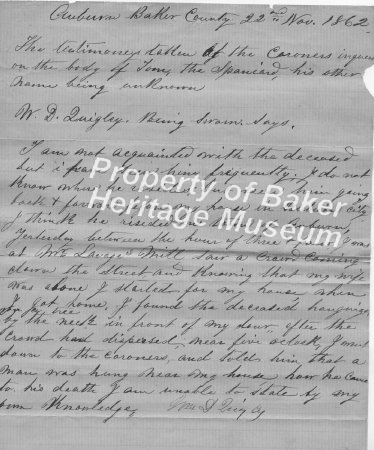 Auburn Baker County 22nd Nov. 1862
The testimoney taken of the Coroners inquest
on the body of Tony the Spaniard, his other
name being unknown
W. D. Quigley. Being Sworn. Says.
I am not acquainted with the deceased
but i him frequently. I do not
know where he him going
back & house in City
I think he resided in was
Yesterday between the hour of three &
at Mill Saw a Crowd Coming
down the Street and Knowing that my wife
was alone I started for my house, when
I got home, I found the deceased hanging
to a tree
by the neck in front of my door, after the
Crowd had dispersed, near five oclock, I went
down to the Coroners, and told him that a
man was hung near my house how he came
to his death I am unable to state by my
own Knowledge,
Wm D Quigley
Property of Baker
Heritage Museum